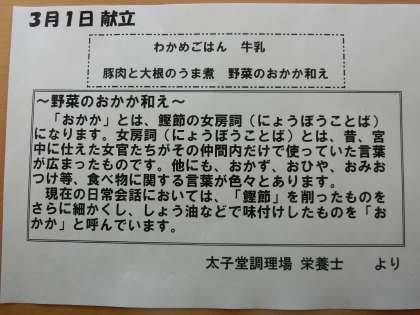 3月1日 献立
わかめごはん　牛乳
豚肉と大根のうま煮　野菜のおかか和え
～野菜のおかか和え～
　「おかか」とは、鰹節の女房詞（にょうぼうことば）
になります。女房詞（にょうぼうことば）とは、昔、宮
中に仕えた女官たちがその仲間内だけで使っていた言葉
が広まったものです。他にも、おかず、おひや、おみお
つけ等、食べ物に関する言葉が色々とあります。
　現在の日常会話においては、「鰹節」を削ったものを
さらに細かくし、しょう油などで味付けしたものを「お
かか」と呼んでいます。
太子堂調理場 栄養士　　より